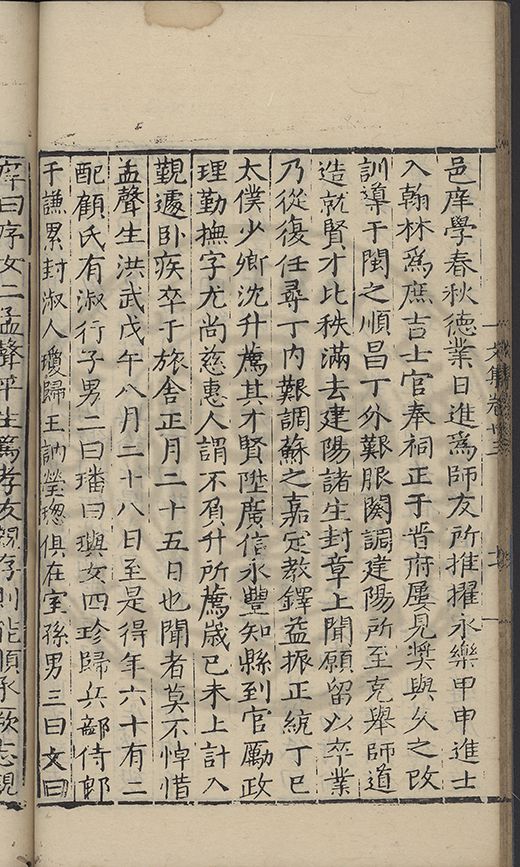 邑庠學春秋德業日進爲師友所推擢永樂甲申進士
入翰林爲庶吉士官奉祠正于晋府屢見奬與久之改
訓導于閩之順昌丁外艱服闋調建陽所至克舉師道
造就賢才比秩滿去建陽諸生封章上聞願留以卒業
乃從復任尋丁内艱調蘇之嘉定教鐸益振正統丁巳
太僕少卿沈升薦其才賢陞廣信永豐知縣到官勵政
理勤撫字尤尚慈惠人謂不負升所薦歳已未上計入
覲遽卧疾卒于旅舎正月二十五日也聞者莫不悼惜
孟聲生洪武戊午八月二十八日至是得年六十有二
配顧氏有淑行子男二曰璠曰璵女四珍歸兵部侍郎
于謙累封淑人瓊歸王訥瑩璁俱在室孫男三曰文曰
庠曰序女二孟聲平生篤孝友親存則能順承歡志親
文集卷廿三
十